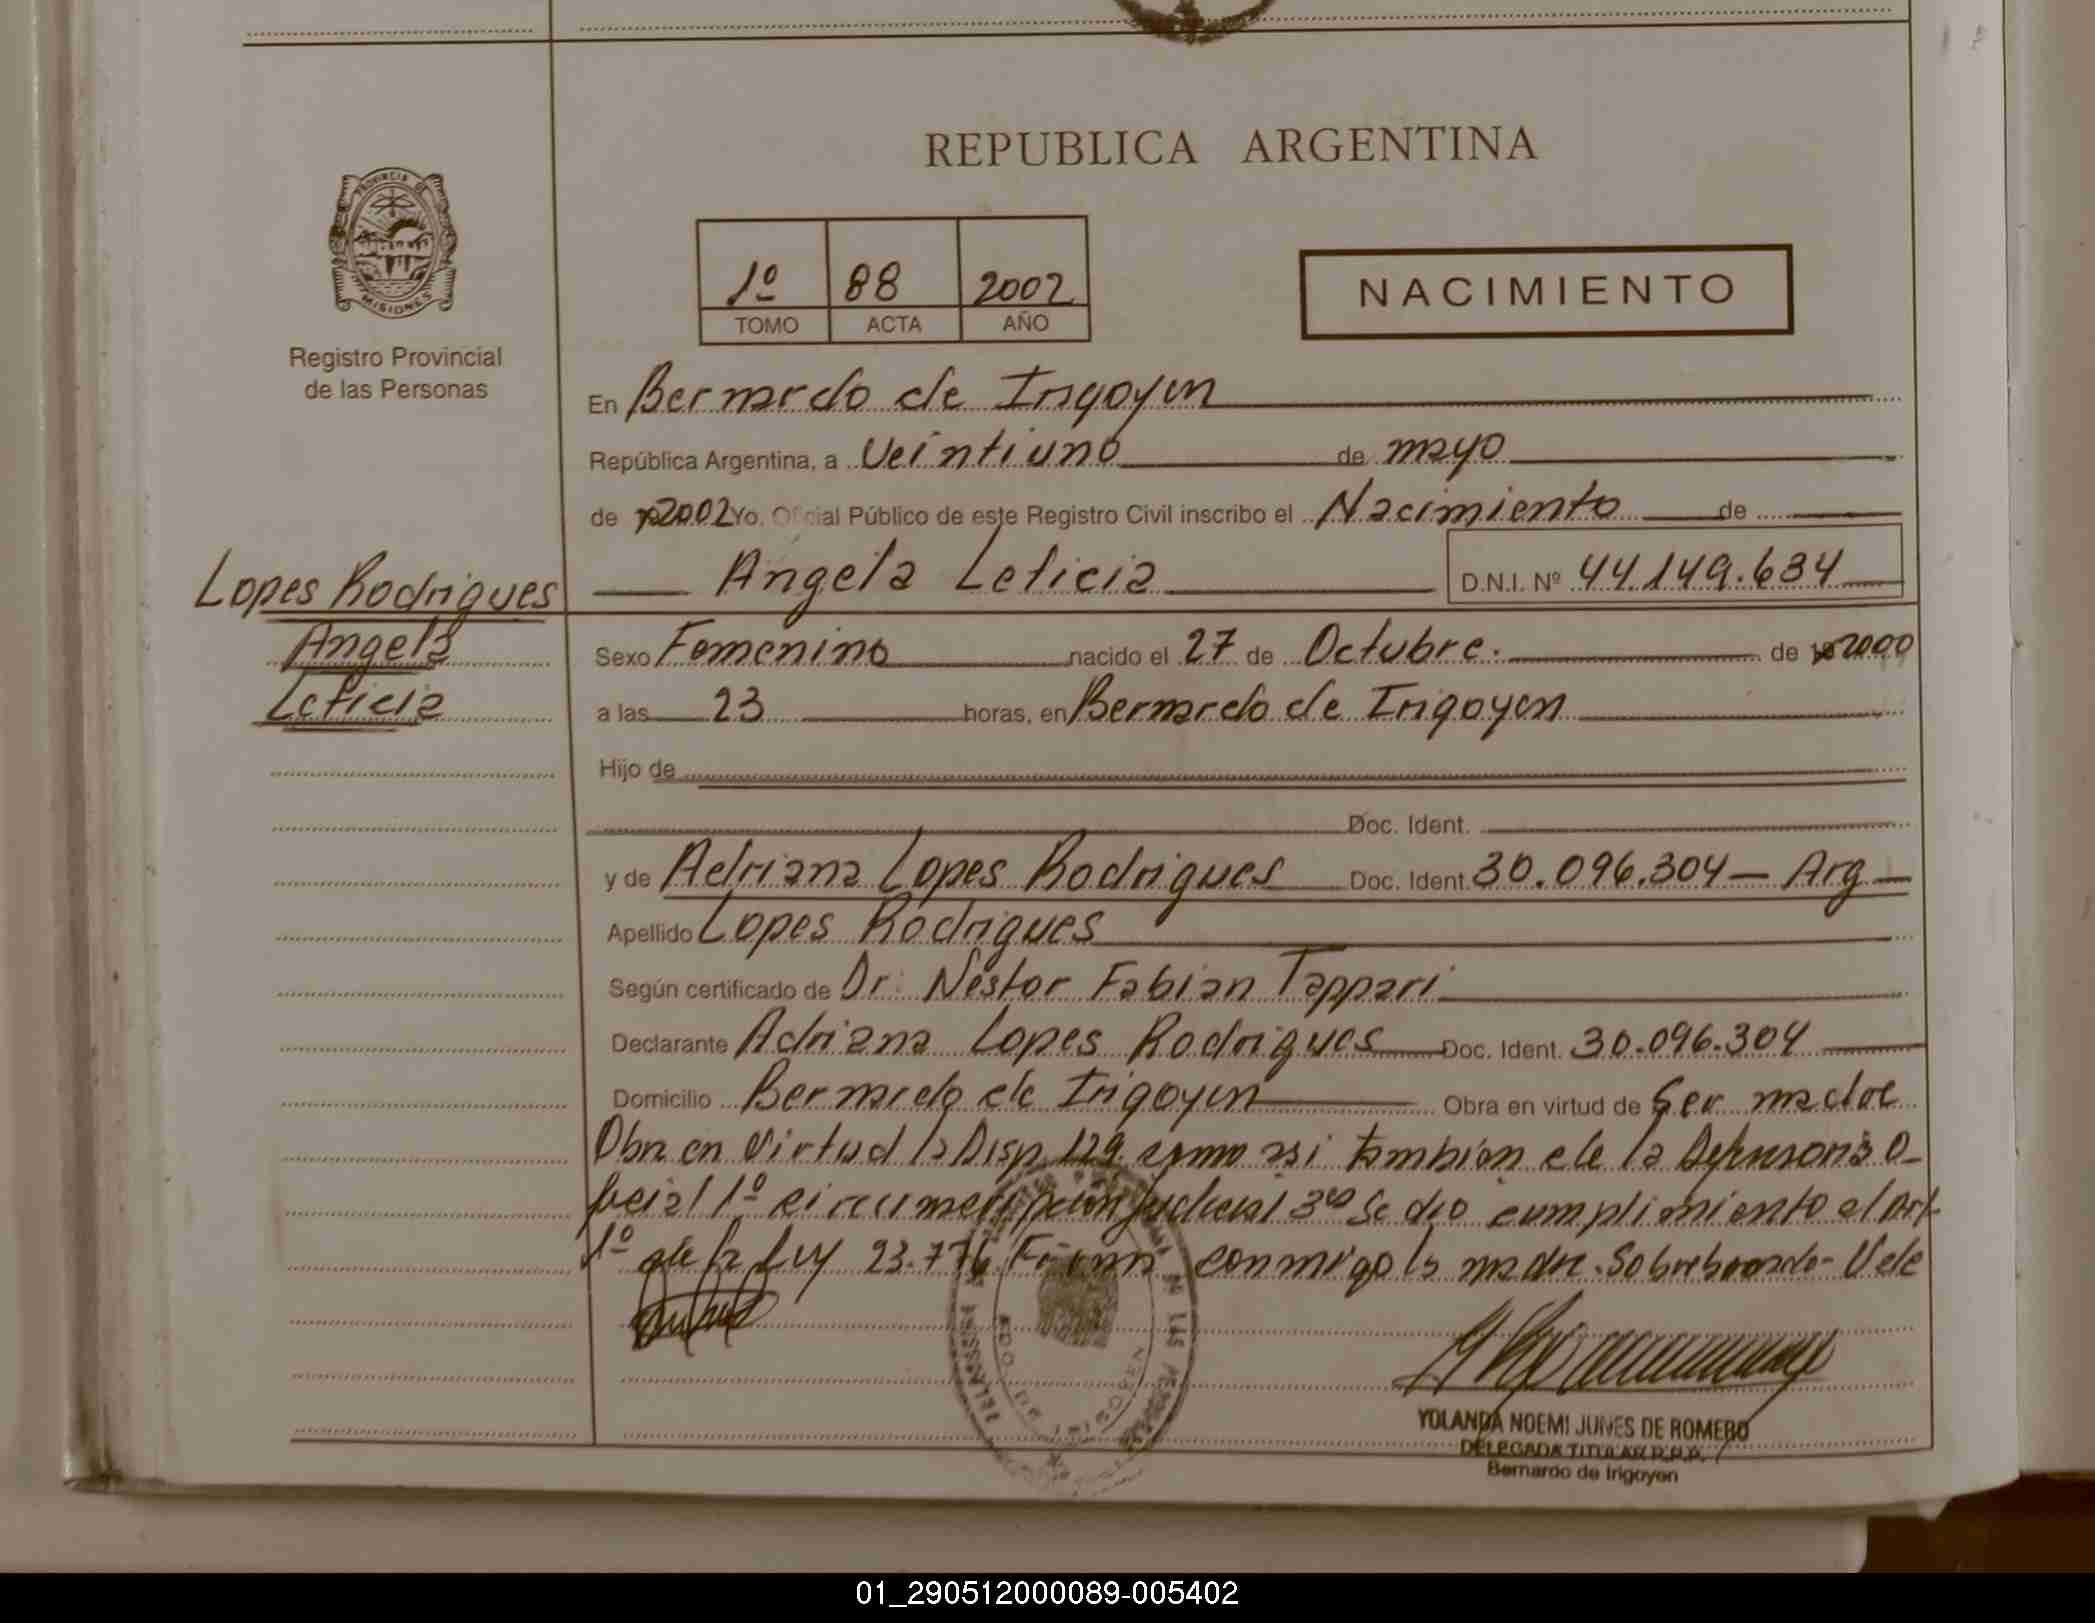 REPUBLICA ARGENTINA
PROVINCIA DE
MISIONES
Registro Provincial
de las Personas
1º 88 2002
TOMO ACTA AÑO
NACIMIENTO
En Bernardo de Irigoyen
República Argentina, a Veintiuno de mayo
de 2002 Yo, Oficial Público de este Registro Civil inscribo el Nacimiento de
Angela Leticia D.N.I. Nº 44.149.634
Lopes Rodrigues
Angela
Leticia
Sexo Femenino nacido el 27 de Octubre. de 2000
a las 23 horas, en Bernardo de Irigoyen
Hijo de
Doc. Ident.
y de Adriana Lopes Rodrigues Doc. Ident. 30.096.304 - Arg
Apellido Lopes Rodrigues
Según certificado de Dr. Néstor Fabian Tappari
Declarante Adriana Lopes Rodrigues Doc. Ident. 30.096.304
Domicilio Bernardo de Irigoyen Obra en virtud de Ser madre
Obra en Virtud la Disp 129 como asi tambien de la Defensoria O-
ficial 1º circunscripcion Judicial Se dio cumplimiento el Art
1º de la Ley 23.776 Firma conmigo la madre. Sobreborrado - Vale
YOLANDA NOEMI JUNES DE ROMERO
DELEGADA TITULAR R.P.P.
Bernardo de Irigoyen
01_290512000089-005402